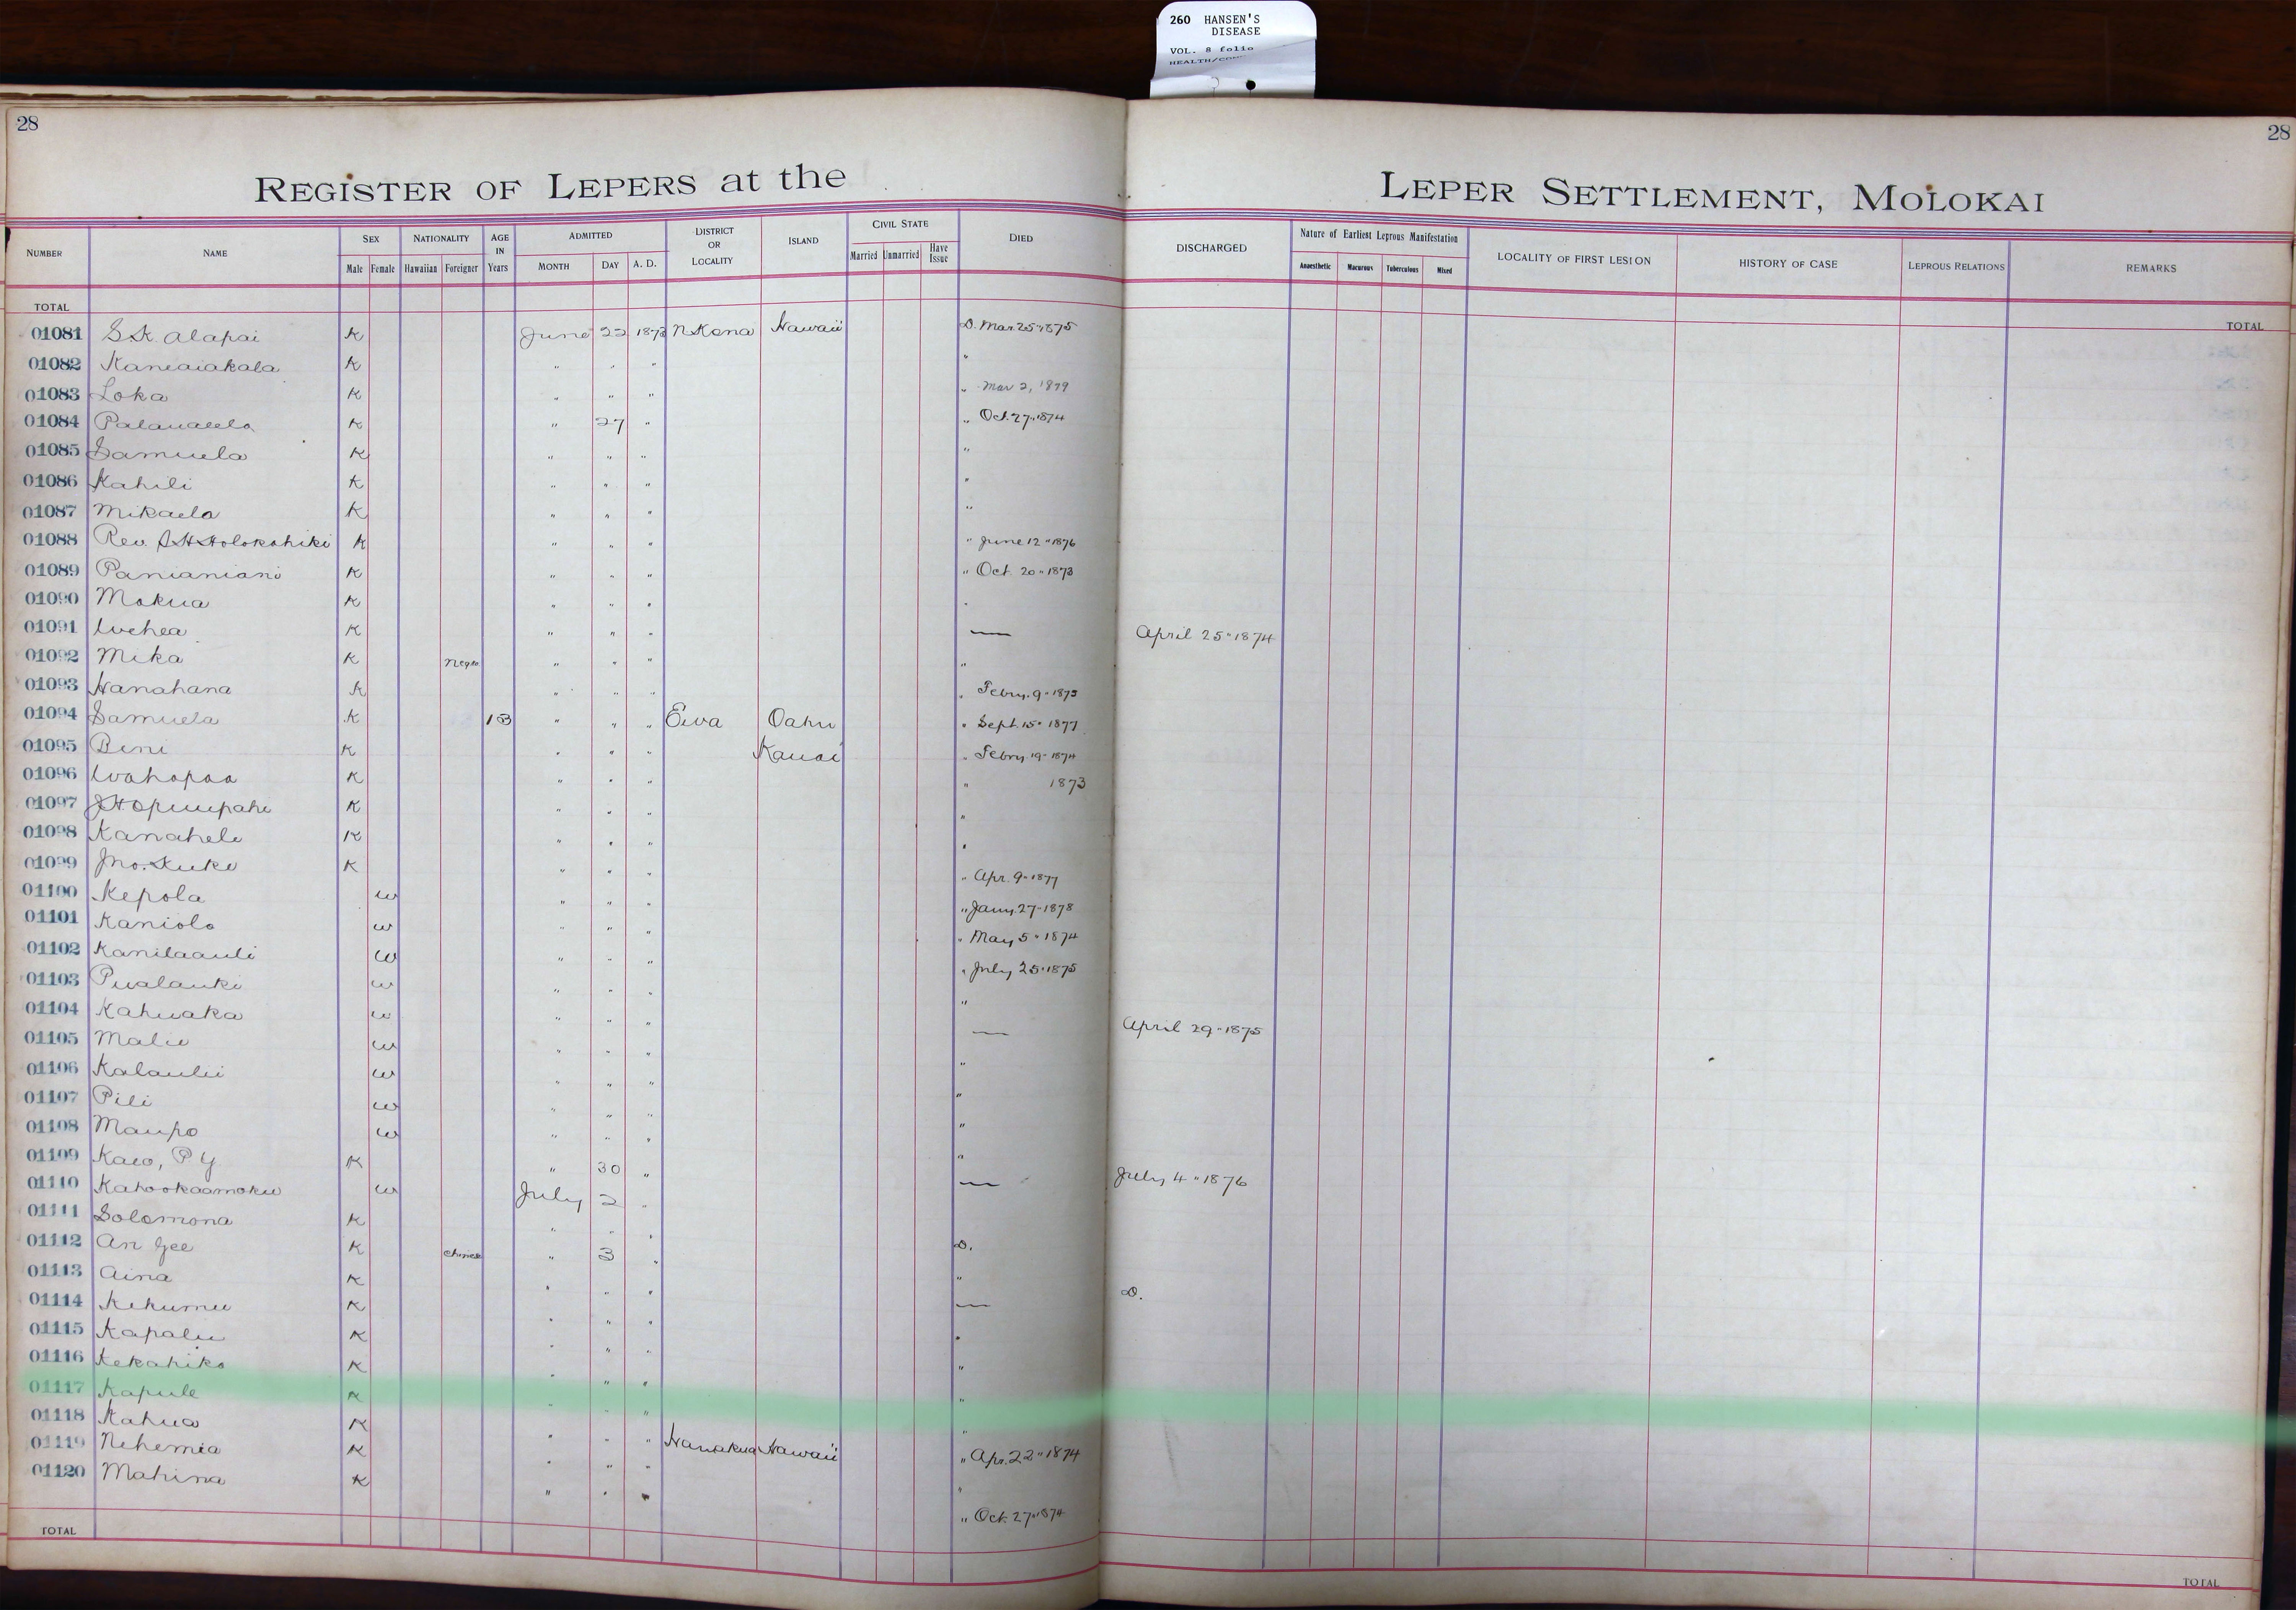 260 HANSEN'S
DISEASE
VOL. 8 folio
28
28
REGISTER OF LEPERS at the LEPER SETTLEMENT, MOLOKAI
NUMBER NAME SEX NATIONALITY AGE IN Years ADMITTED DISTRICT OR LOCALITY ISLAND CIVIL STATE DIED DISCHARGED Nature of Earliest Leprous Manifestation LOCALITY OF FIRST LESION HISTORY OF CASE LEPROUS RELATIONS REMARKS
Male Female Hawaiian Foreigner MONTH DAY A. D. Married Unmarried Have Issue Anaesthetic Macurous Tuberculous Mixed
TOTAL TOTAL
01081 S.K. Alapai K June 22 1873 N Kona Hawaii D. Mar. 25 " 1875
01082 Kaneaiakala K " " " "
01083 Loka K " " " " Mar 2, 1879
01084 K " 27 " " Oct. 27 " 1874
01085 Samuela K " " " "
01086 Kahili K " " " "
01087 Mikaela K " " " "
01088 Rev. Holokahiki K " " " " June 12 " 1876
01089 Panianiani K " " " " Oct. 20 " 1873
01090 Mokua K " " " "
01091 K " " " — April 25 " 1874
01092 Mika K Negro " " " "
01093 Hanahana K " " " " Febry. 9 "
01094 Samuela K 13 " " " Ewa Oahu " Sept. 15 " 1877
01095 Beni K " " " Kauai " Febry 19 " 1874
01096 Wahapaa K " " " " 1873
01097 K " " " "
01098 Kanahele K " " " "
01099 Jno. Kuke K " " " " Apr. 9 " 1877
01100 Kepola w " " " " Jany. 27 " 1878
01101 Kaniolo w " " " " May 5 " 1874
01102 Kanilaauli w " " " " July 25 " 1875
01103 Pualauki w " " " "
01104 Kahuaka w " " " — April 29 " 1875
01105 Malie w " " " "
01106 Kalaulii w " " " "
01107 Pili w " " " "
01108 Maupo w " " " "
01109 Kaeo, P Y K " 30 " — July 4 " 1876
01110 Kahookaamoku w July 2 "
01111 Solomona K " " "
01112 K Chinese " 3 " D.
01113 Aina K " " " "
01114 Kekumu K " " " — D.
01115 Kapalu K " " " "
01116 Kekahiko K " " " "
01117 Kapule K " " " "
01118 Kahua K " " " "
01119 Nehemia K " " " Hamakua Hawaii " Apr. 22 " 1874
01120 Mahina K " " " " Oct. 27 " 1874
TOTAL TOTAL